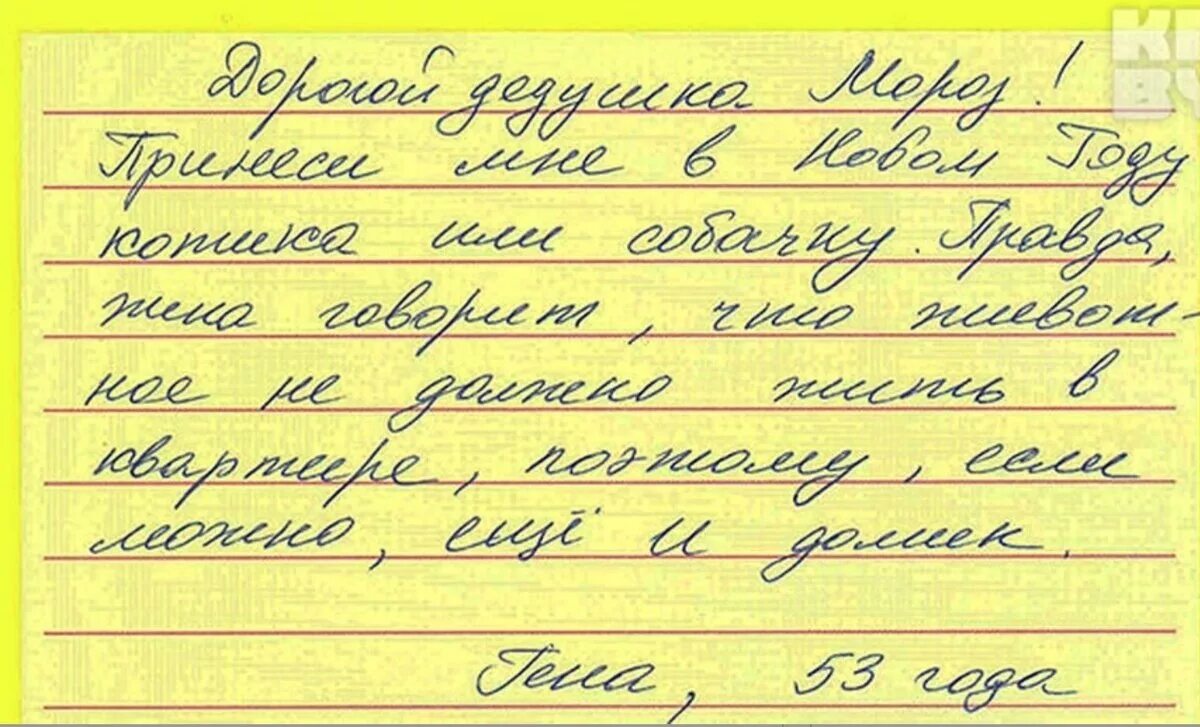 Дорогой дедушка Мороз!
Принеси мне в Новом Году
котика или собачку. Правда,
жена говорит, что живот-
ное не должно жить в
квартире, поэтому, если
можно, ещё и домик.
Гена, 53 года